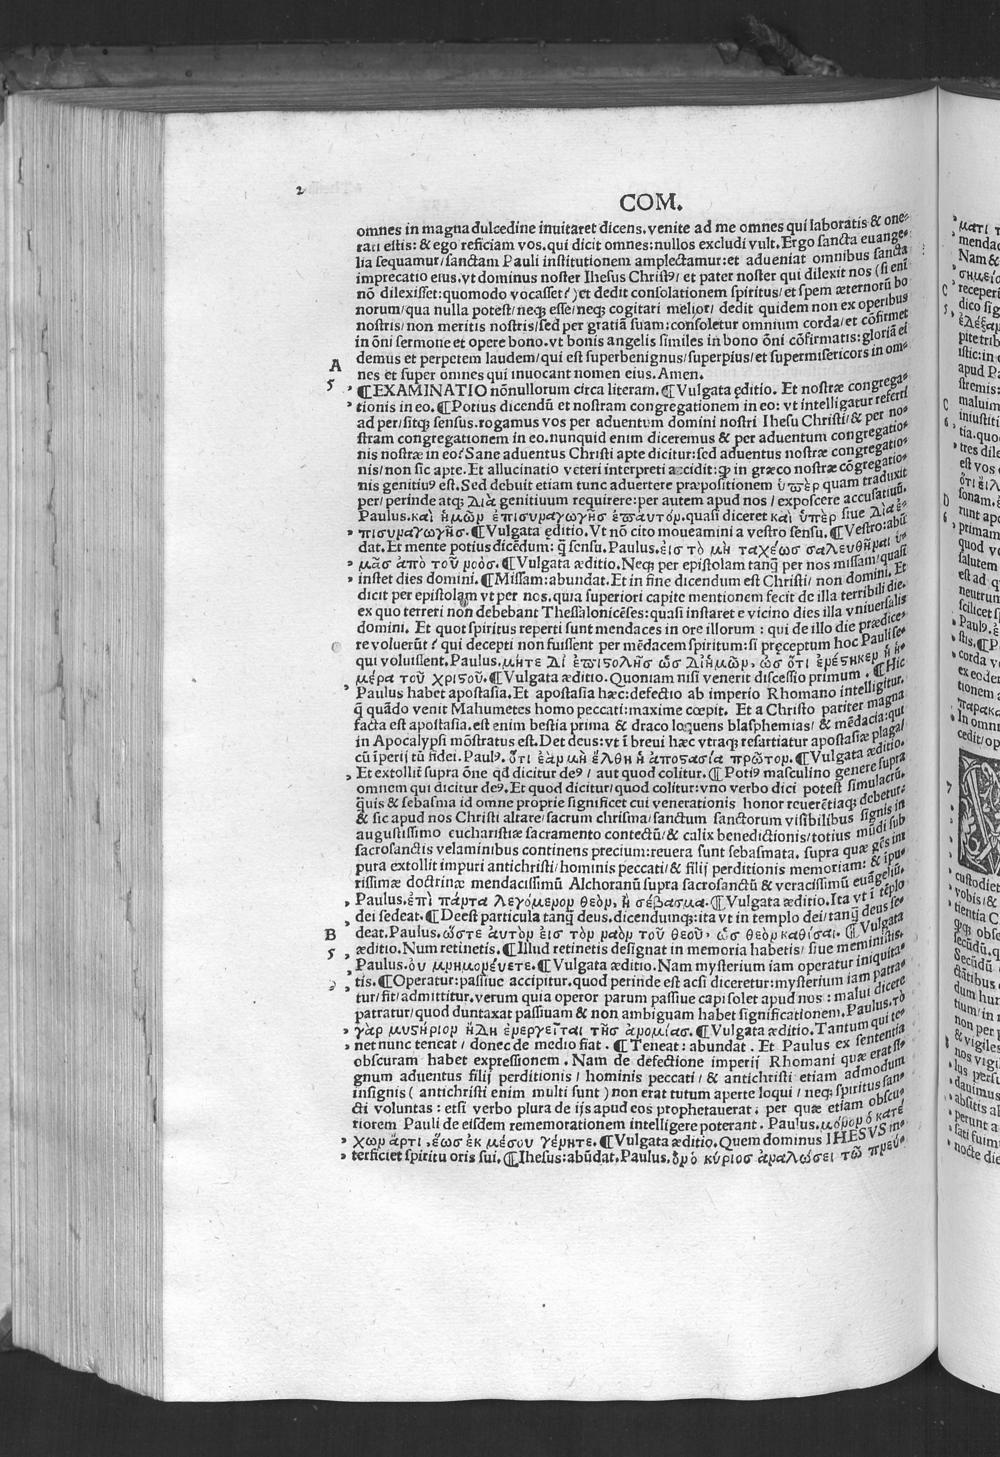 2
COM.
omnes in magna dulcedine inuitaret dicens. venite ad me omnes qui laboratis & one-
rati estis: & ego reficiam vos. qui dicit omnes: nullos excludi vult. Ergo sancta euange-
lia sequamur/ sanctam Pauli institutionem amplectamur: et adueniat omnibus sancta
imprecatio eius. vt dominus noster Ihesus Christꝰ/ et pater noster qui dilexit nos (si enī
nō dilexisset: quomodo vocasset?) et dedit consolationem spiritus/ et spem æternorū bo
norum/ qua nulla potest/ neqꝫ esse/ neqꝫ cogitari melior/ dedit quidem non ex operibus
nostris/ non meritis nostris/ sed per gratiā suam: consoletur omnium corda/ et cōfirmet
in ōni sermone et opere bono. vt bonis angelis similes in bono ōni cōfirmatis: gloriā ei
demus et perpetem laudem/ qui est superbenignus/ superpius/ et supermisericors in om-
nes et super omnes qui inuocant nomen eius. Amen.
A
5 ¶EXAMINATIO nōnullorum circa literam. ¶Vulgata ęditio. Et nostræ congrega-
tionis in eo. ¶Potius dicendū et nostram congregationem in eo: vt intelligatur referri
ad per/ sitqꝫ sensus. rogamus vos per aduentum domini nostri Ihesu Christi/ & per no-
stram congregationem in eo. nunquid enim diceremus & per aduentum congregatio-
nis nostræ in eo? Sane aduentus Christi apte dicitur: sed aduentus nostræ congregatio-
nis/ non sic apte. Et allucinatio veteri interpreti accidit: ꝙ in græco nostræ cōgregatio-
nis genitiuꝰ est. Sed debuit etiam tunc aduertere præpositionem ὑπὲρ quam traduxit
per/ perinde atqꝫ διὰ genitiuum requirere: per autem apud nos/ exposcere accusatiuū.
Paulus. καὶ ἡμῶν ἐπισυναγωγῆσ ἐπαυτόν. quasi diceret καὶ ὑπὲρ siue διὰ ἐ-
πισυναγωγῆσ. ¶Vulgata ęditio. Vt nō cito moueamini a vestro sensu. ¶Vestro: abū
dat. Et mente potius dicēdum: q̄ sensu. Paulus. εἰσ τὸ μὴ ταχέωσ σαλευθῆναι ὑ-
μᾶσ ἀπὸ τοῦ νοὸσ. ¶Vulgata æditio. Neqꝫ per epistolam tanq̄ per nos missam/ quasi
instet dies domini. ¶Missam: abundat. Et in fine dicendum est Christi/ non domini. Et
dicit per epistolam vt per nos. quia superiori capite mentionem fecit de illa terribili die.
ex quo terreri non debebant Thessalonicēses: quasi instaret e vicino dies illa vniuersalis
domini. Et quot spiritus reperti sunt mendaces in ore illorum: qui de illo die prædice-
re voluerūt? qui decepti non fuissent per mēdacem spiritum: si pręceptum hoc Pauli se-
qui voluissent. Paulus. μητε δι ἐπιστολῆσ ὡσ διἡμῶν, ὡσ ὅτι ἐνέστηκεν ἡ ἡ-
μέρα τοῦ χριστοῦ. ¶Vulgata æditio. Quoniam nisi venerit discessio primum. ¶Hic
Paulus habet apostasia. Et apostasia hæc: defectio ab imperio Rhomano intelligitur.
q̄ quādo venit Mahumetes homo peccati: maxime cœpit. Et a Christo pariter magna
facta est apostasia. est enim bestia prima & draco loquens blasphemias/ & mēdacia: qui
in Apocalypsi mōstratus est. Det deus: vt ī breui hæc vtraqꝫ resartiatur apostasiæ plaga/
cū īperij tū fidei. Paulꝰ. ὅτι ἐὰν μὴ ἔλθη ἡ ἀποστασία πρῶτον. ¶Vulgata æditio.
Et extollit supra ōne qd dicitur deꝰ/ aut quod colitur. ¶Potiꝰ masculino genere supra
omnem qui dicitur deꝰ. Et quod dicitur/ quod colitur: vno verbo dici potest simulacrū.
q̄uis & sebasma id omne proprie significet cui venerationis honor reuerētiaqꝫ debetur:
& sic apud nos Christi altare/ sacrum chrisma/ sanctum sanctorum visibilibus signis in
augustissimo eucharistiæ sacramento contectū/ & calix benedictionis/ totius mūdi sub
sacrosanctis velaminibus continens precium: reuera sunt sebasmata. supra quæ gēs im
pura extollit impuri antichristi/ hominis peccati/ & filij perditionis memoriam: & ipu-
rissimæ doctrinæ mendacissimū Alchoranū supra sacrosanctū & veracissimū euāgeliū.
Paulus. ἐπὶ πάντα λεγόμενον θεὸν, ἢ σέβασμα. ¶Vulgata æditio. Ita vt ī tēplo
dei sedeat. ¶Deest particula tanq̄ deus. dicendumqꝫ: ita vt in templo dei/ tanq̄ deus se-
B deat. Paulus. ὥστε ἀυτὸν ἐισ τὸν ναὸν τοῦ θεοῦ, ὡσ θεὸν καθίσαι. ¶Vulgata
5 æditio. Num retinetis. ¶Illud retinetis designat in memoria habetis/ siue meministis.
Paulus. ὀυ μνημονέυετε. ¶Vulgata æditio. Nam mysterium iam operatur iniquita-
tis. ¶Operatur: passiue accipitur. quod perinde est acsi diceretur: mysterium iam patra-
tur/ fit/ admittitur. verum quia operor parum passiue capi solet apud nos: malui dicere
patratur/ quod duntaxat passiuam & non ambiguam habet significationem. Paulus. τὸ
γὰρ μυστήριον ἤδη ἐνεργεῖται τῆσ ἀνομίασ. ¶Vulgata æditio. Tantum qui te-
net nunc teneat/ donec de medio fiat. ¶Teneat: abundat. Et Paulus ex sententia
obscuram habet expressionem. Nam de defectione imperij Rhomani quæ erat si-
gnum aduentus filij perditionis/ hominis peccati/ & antichristi etiam admodum
insignis (antichristi enim multi sunt) non erat tutum aperte loqui/ neqꝫ spiritus san-
cti voluntas: etsi verbo plura de ijs apud eos prophetauerat. per quæ etiam obscu-
riorem Pauli de eisdem rememorationem intelligere poterant. Paulus. μόνον ὁ κατέ
χων ἄρτι, ἕωσ ἐκ μέσου γένητε. ¶Vulgata æditio. Quem dominus IHESVS in-
terficiet spiritu oris sui. ¶Ihesus: abūdat. Paulus. ὃν ὁ κύριοσ ἀναλώσει τῶ πνεύ-